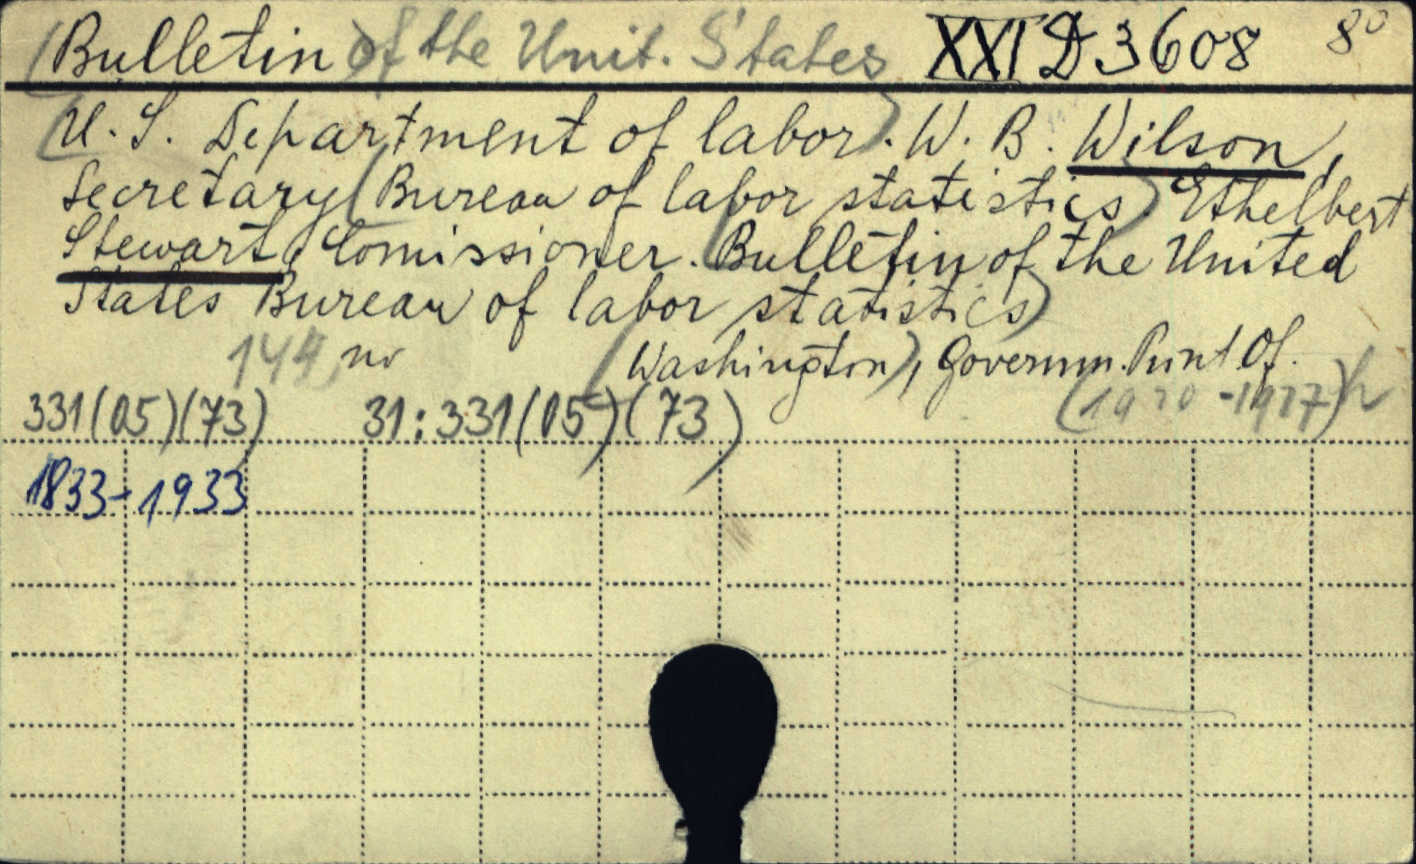 (Bulletin) of the Unit. States XXI D 3608 8°
(U. S. Department of labor). W. B. Wilson,
Secretary (Bureau of labor statistics) Ethelbert
Stewart, Comissioner. (Bulletin of the United
States Bureau of labor statistics)
144 no (Washington), Governm. Print Of.
331(05)(73) 31:331(05)(73) (1920-1927)
1833-1933